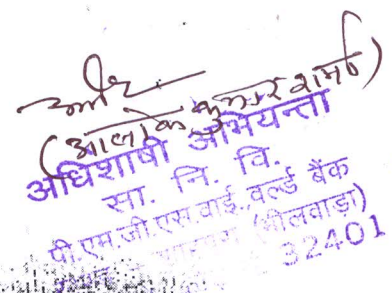 (आलोक कुमार शर्मा)
अधिशाषी अभियन्ता
सा. नि. वि.
पी.एम.जी.एस.वाई.,वर्ल्ड बैंक
(भीलवाड़ा)
32401